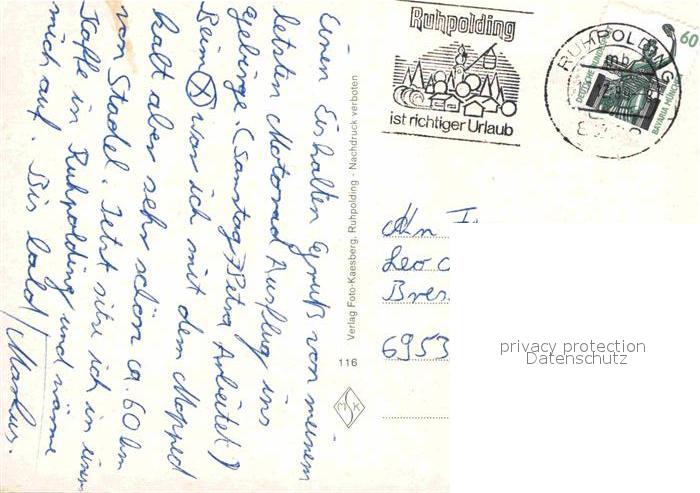 Einen Eiskalten Gruß von meinem
letzten Motorrad Ausflug ins
gebirge (Samstag, Petra Arbeitet!)
Beim X war ich mit dem Mopped
kalt aber sehr schön ca. 60 km
von Stadel. Jetzt sitze ich in einem
Kaffe in Ruhpolding und wärme
mich auf. Bis bald / Markus.
Verlag Foto-Kaesberg, Ruhpolding - Nachdruck verboten
116
M S K
Ruhpolding
ist richtiger Urlaub
RUHPOLDING
mb
60
DEUTSCHE BUNDESPOST
BAVARIA MÜNCHEN
An
Leo
Bres
6953
privacy protection
Datenschutz